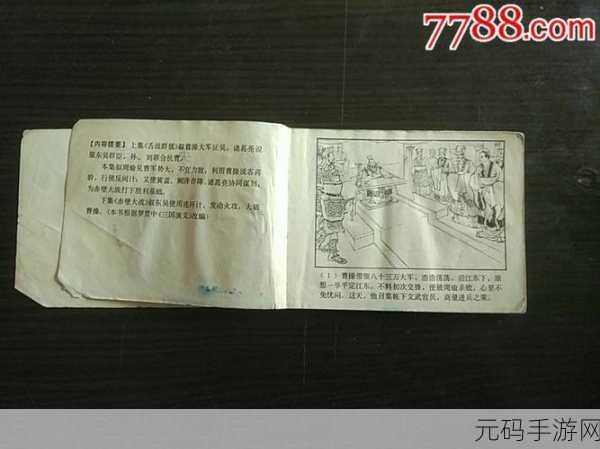 7788.com
【内容提要】 上集《舌战群儒》叙曹操大军压吴,诸葛亮说
服东吴群臣,孙、刘联合抗曹。
本集叙周瑜见曹军势大,不宜力敌,利用曹操谋客蒋
干,行使反间计;又使黄盖、阚泽诈降,诸葛亮协同谋划,
为赤壁大战打下胜利基础。
下集《赤壁大战》叙东吴使用连环计,发动火攻,大破
曹操。(本书根据罗贯中《三国演义》改编)
(1)曹操带领八十三万大军,浩浩荡荡,沿江东下,满
想一举平定江东。不料初次交锋,便被周瑜杀败,心里不
免忧闷。这天,他召集帐下文武官员,商量进兵之策。
元码手游网